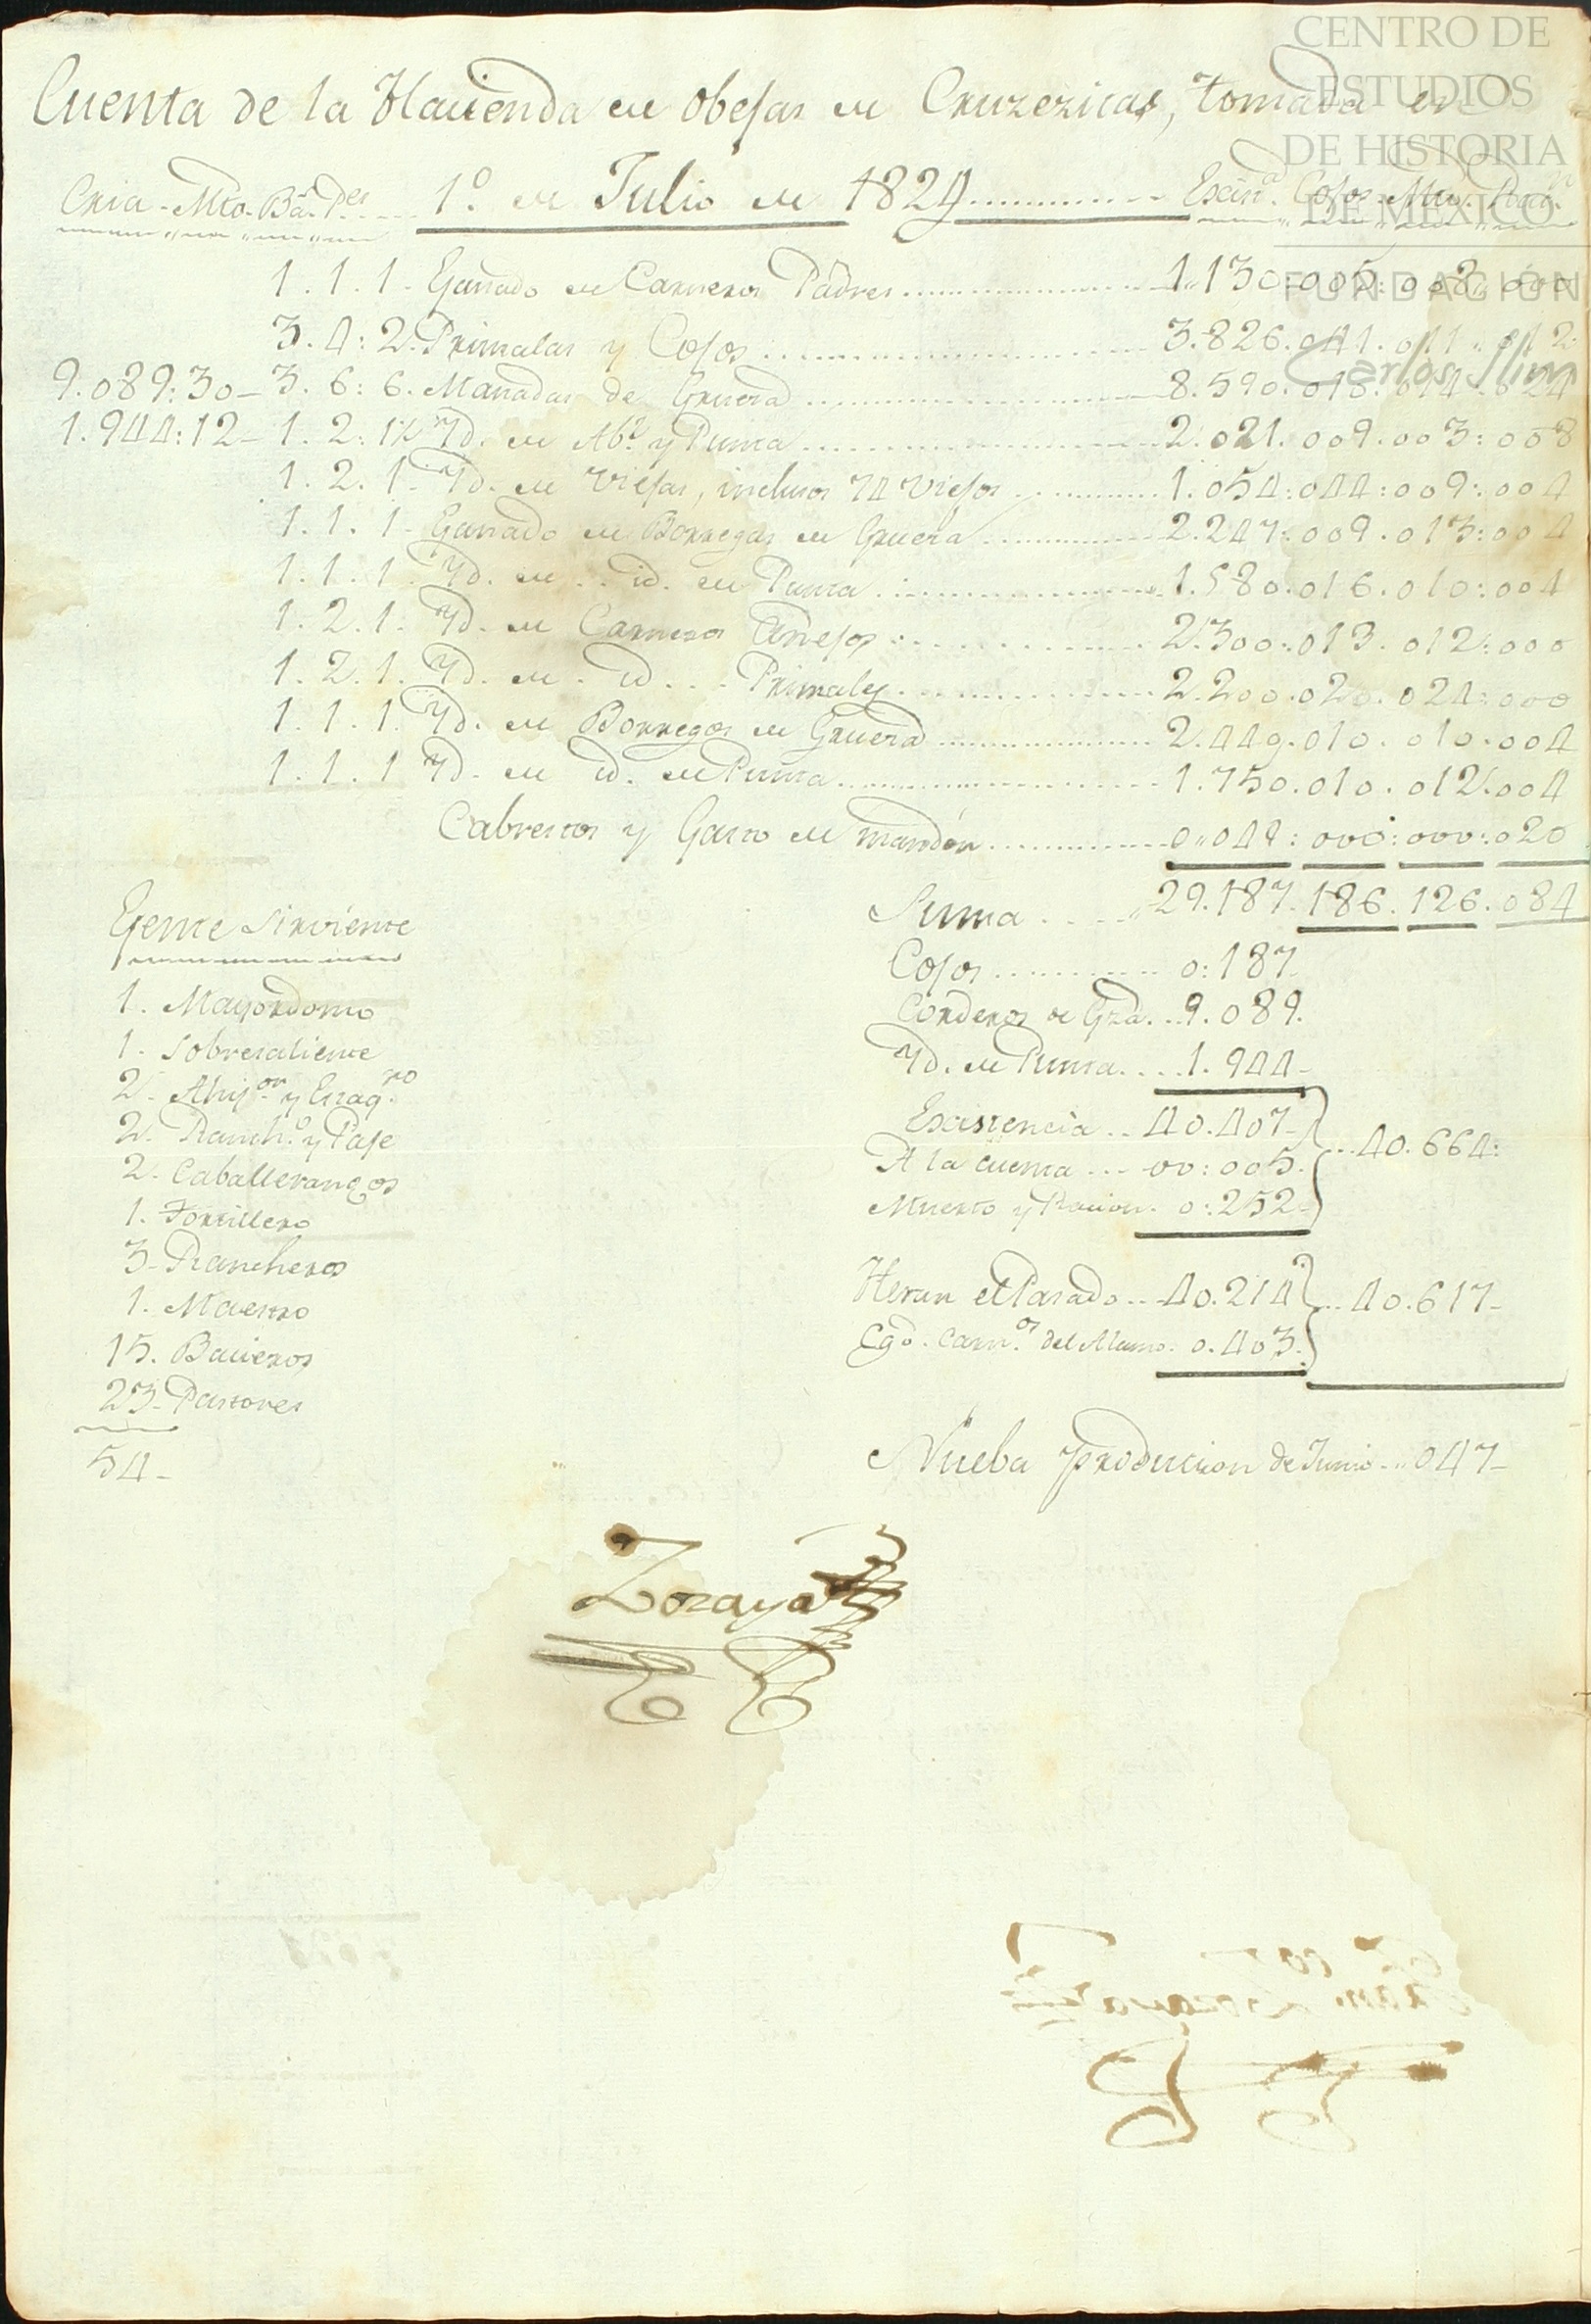 CENTRO DE
ESTUDIOS
DE HISTORIA
DE MÉXICO
FUNDACIÓN
Carlos Slim
Cuenta de la Hacienda de Obejas de Cruzezitas, tomada en
Cria. Mto. Ba. Pes. 1.º de Julio de 1829 Exisn.ª Cojos. Mtos. Rac.
1. 1. 1. Ganado de Carneros Padres 1.130:005:008:000
3. 4: 2. Primalas y Cojos 3.826.041.011.012
9.089:30 - 3. 6: 6. Manadas de Gruesa 8.590.018.014.024
1.944:12 - 1. 2: 1½ Yd. de Ab.l y Punta 2.021.009.003:008
1. 2. 1. Yd. de Viejas, inclusos 74 Viejos 1.054:044:009:004
1. 1. 1. Ganado de Borregas de Gruesa 2.247:009.013:004
1. 1. 1. Yd. de id. de Punta 1.580.016.010:004
1. 2. 1. Yd. de Carneros Añejos 2.300:013.012:000
1. 2. 1. Yd. de id. Primales 2.200.020.024:000
1. 1. 1. Yd. de Borregos de Gruesa 2.449.010.010.004
1. 1. 1. Yd. de id. de Punta 1.750.010.012.004
Cabrestos y Gasto de mandón 0.,049:000:000:020
Suma 29.187.186.126.084
Cojos 0:187
Corderos de Gsa. 9.089.
Yd. de Punta 1.944
Existencia 40.407
A la cuenta 00:005. 40.664:
Muerto y Racion. 0:252
Heran el Pasado 40.214
40.617
Cgo. Carn.os del Alamo. 0.403.
Nueba producion de Junio 047
Gente Sirviente
1. Mayordomo
1. Sobresaliente
2. Ahij.or y Esaq.ro
2. Ranch.o y Paje
2. Caballerangos
1. Tortillero
3. Rancheros
1. Maestro
15. Bacieros
23. Pastores
54
Lozaya